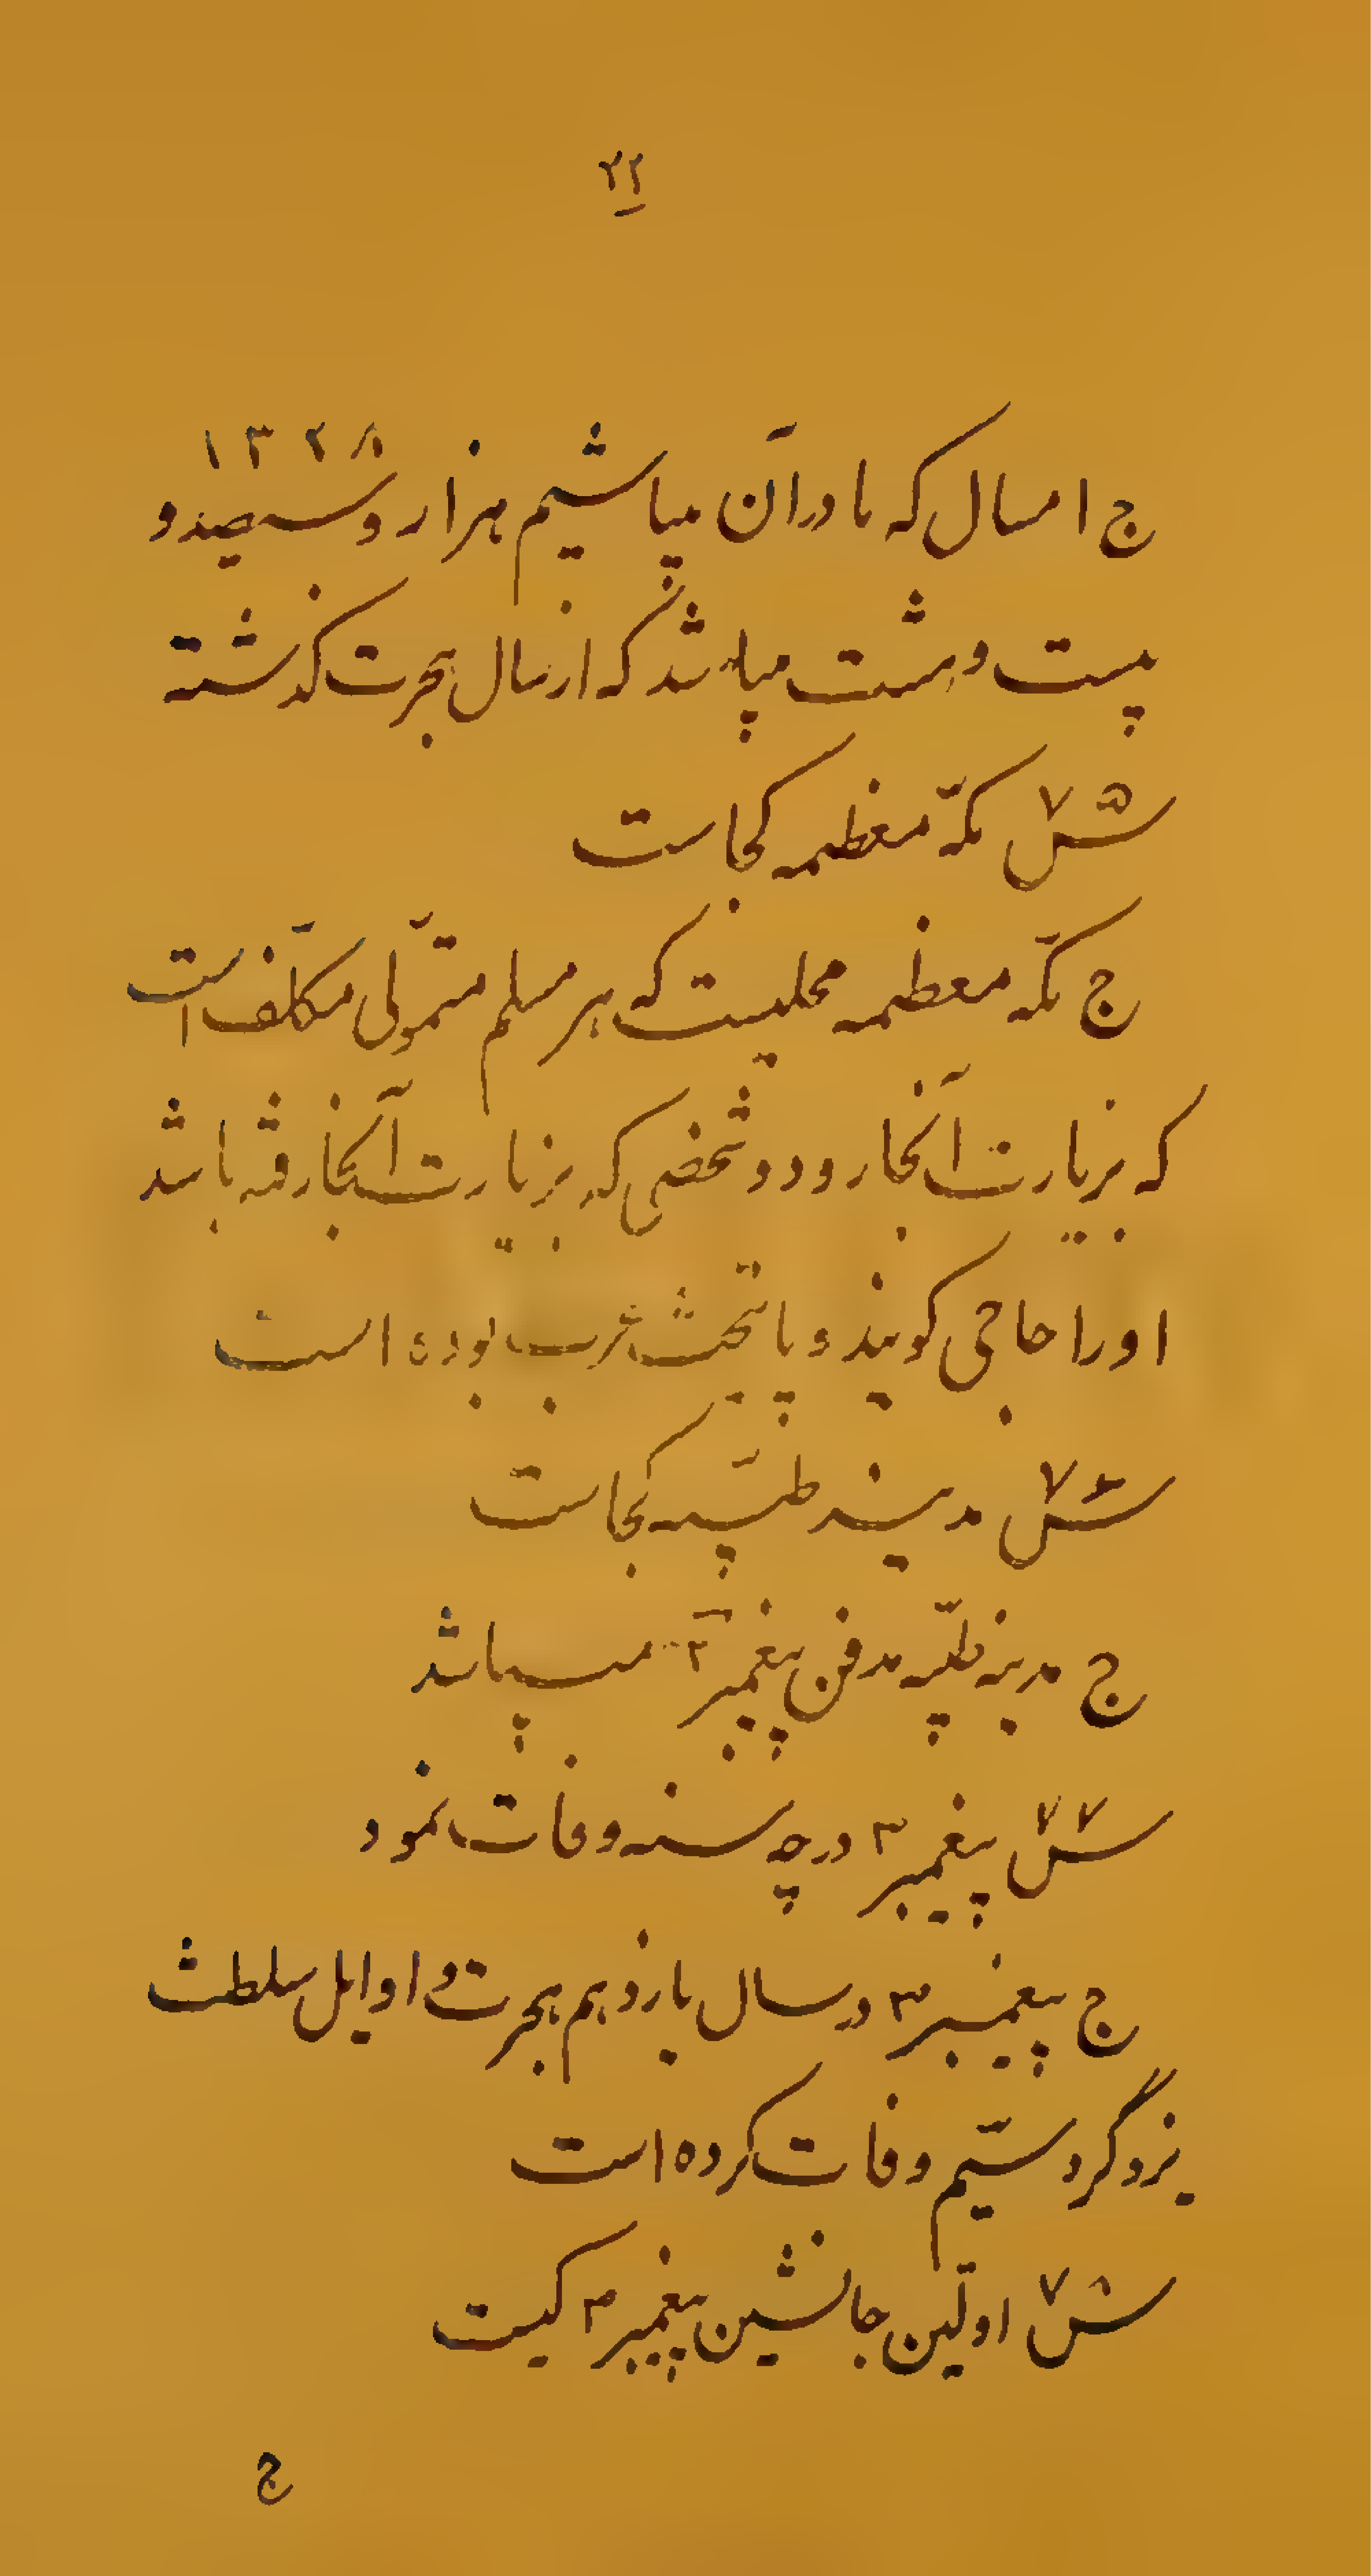 ۲۲
۱۳۲۸
ج امسال که ما در آن میباشیم هزار و سیصد و
بیست و هشت میباشد که از سال هجرت گذشته
س ۷۵ مکّه معظمه کجاست
ج مکّه معظمه محلیست که هر مسلم متموّلی مکلّف است
که بزیارت آنجا رود و شخصی که بزیارت آنجا رفته باشد
او را حاجی کویند و پایتخت عرب بوده است
س ۷۶ مدینه طیّبه کجاست
ج مدینه طیّبه مدفن پیغمبر ص میباشد
س ۷۷ پیغمبر ص در چه سنه وفات نمود
ج پیغمبر ص در سال یازدهم هجرت و اوایل سلطنت
یزدگرد سیّم وفات کرده است
س ۷۸ اولّین جانشین پیغمبر ص کیست
ج